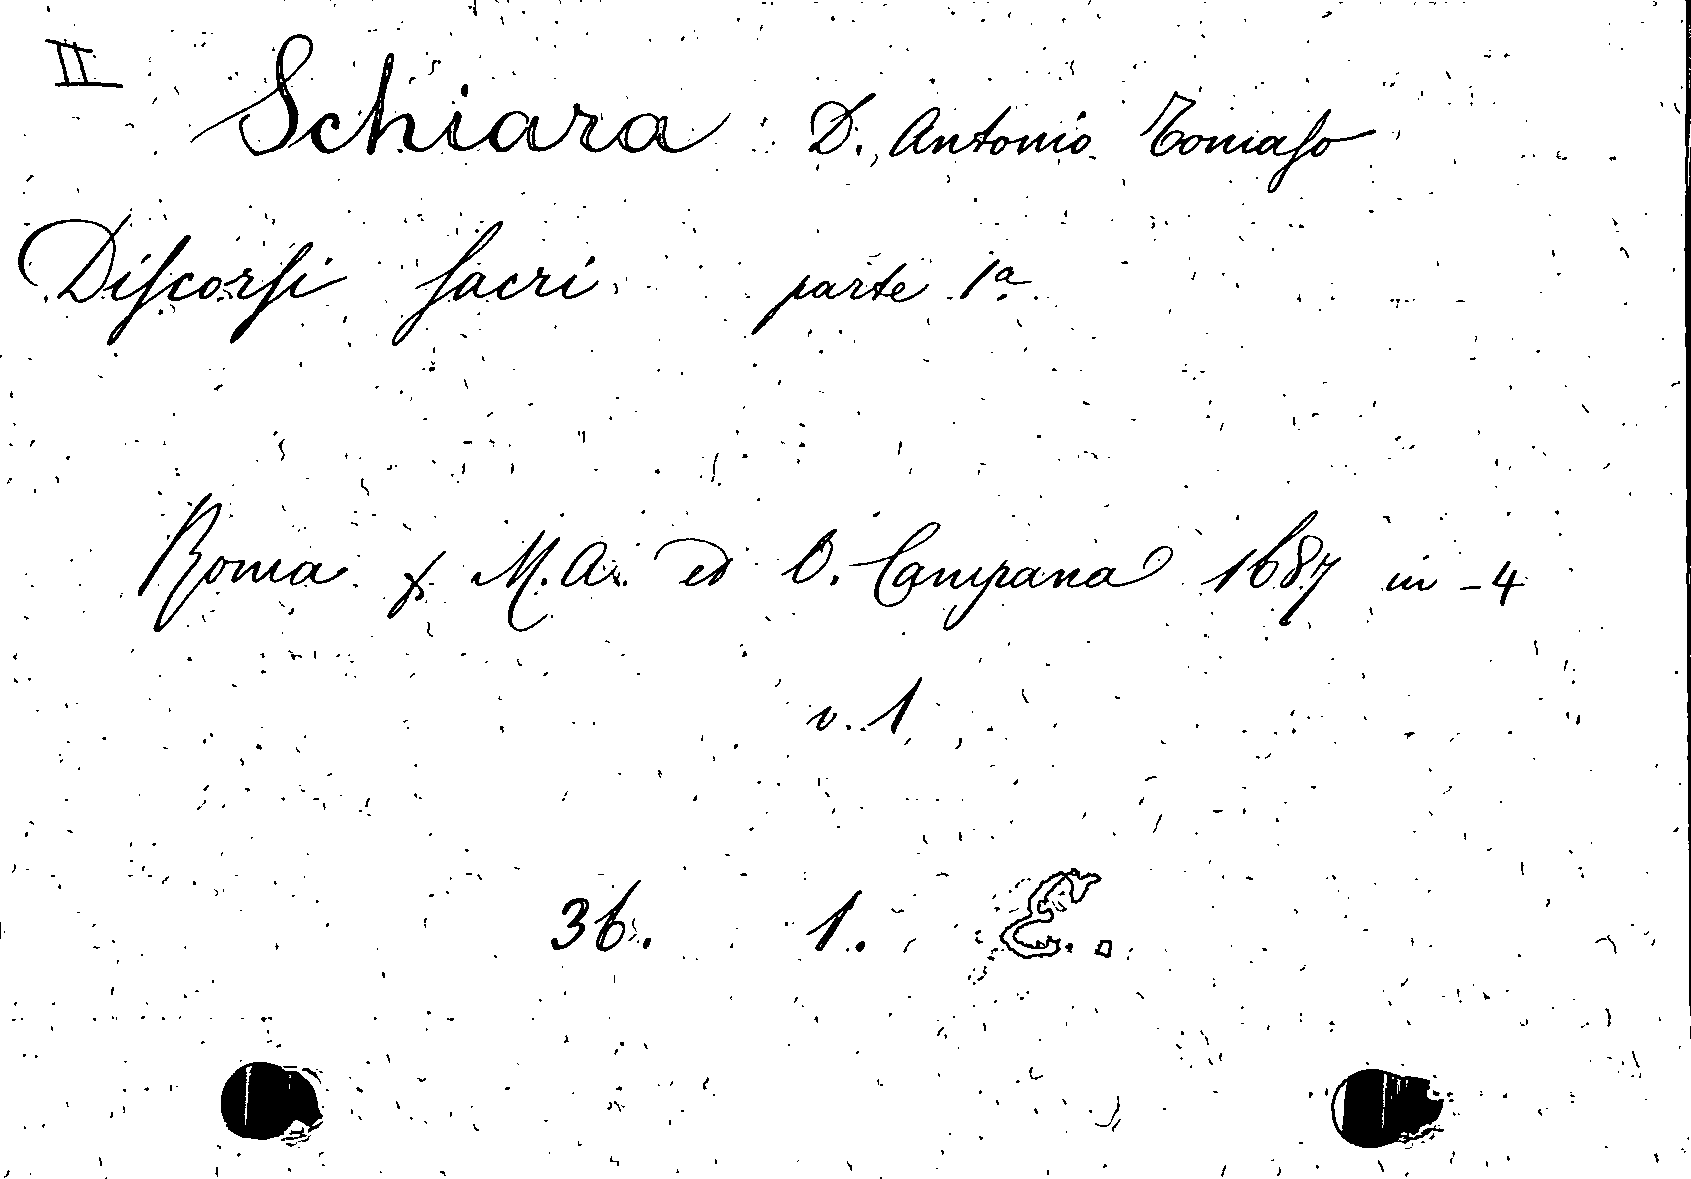 II
Schiara D. Antonio Tomaſo
Diſcorſi ſacri parte 1ª
Roma x M. A. ed O. Campana 1687 in -4
v. 1
36. 1. E.